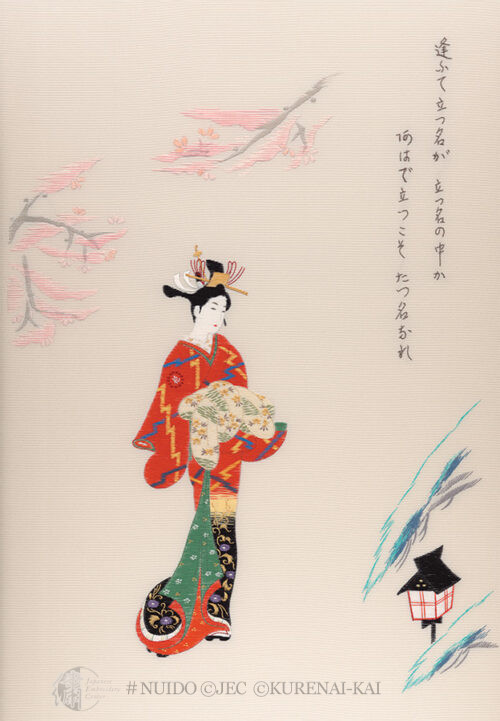 逢ふて立つ名が 立つ名の中か
阿はで立つこそ たつ名なれ
Japanese
Embroidery
Center
# NUIDO ©JEC ©KURENAI-KAI